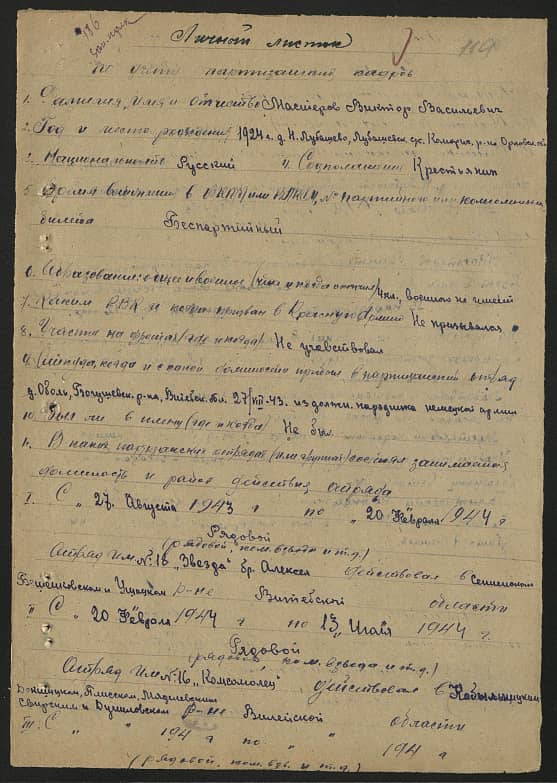 186
119
Личный листок
по учету партизанских кадров
1. Фамилия, имя и отчество Мастеров Виктор Васильевич
2. Год и место рождения 1924 г. д. Н. Лубашево, Лубашевск. с/с. Комарич. р-на Орловской
3. Национальность Русский 4. Соцположение Крестьянин
5. Время вступления в ВКП(б) или ВЛКСМ, № партийного или комсомольск.
билета Беспартийный
6. Образование: общее и военное (чина и когда окончил) 4 кл., военного не имеет
7. Каким РВК и когда призван в Красную Армию Не призывался
8. Участие на фронтах (где и когда) Не учавствовал
9. Откуда, когда и с какой должности прибыл в партизанский отряд
д. Оболь, Богушевск. р-на, Витебск. обл. 27/VIII-43. из должн. народника немецкой армии
10. Был ли в плену (где и когда) Не был
11. В каких партизанских отрядах (или группах) состоял занимаемая
должность и район действия отряда
I. С "27" Августа 1943 г по "20" Февраля 1944 г
Рядовой
(рядовой, пом. взвода и т.д.)
Отряд им. № 16 "Звезда" бр. Алексея действовал в Сенненском
Бешенковском и Ушацком р-не Витебской области
II С "20" Февраля 1944 г по 13 Июля 1944 г.
Рядовой
(рядовой, пом. взвода и т.д.)
Отряд им № 16, "Комсомолец" действовал в Кобыльницком
Докшицком, Плисском, Мядельском
Свирском и Дуниловском р-не Вилейской области
III. С " " 194 г по " " 194 г
(рядовой, пом. взв. и т.д.)